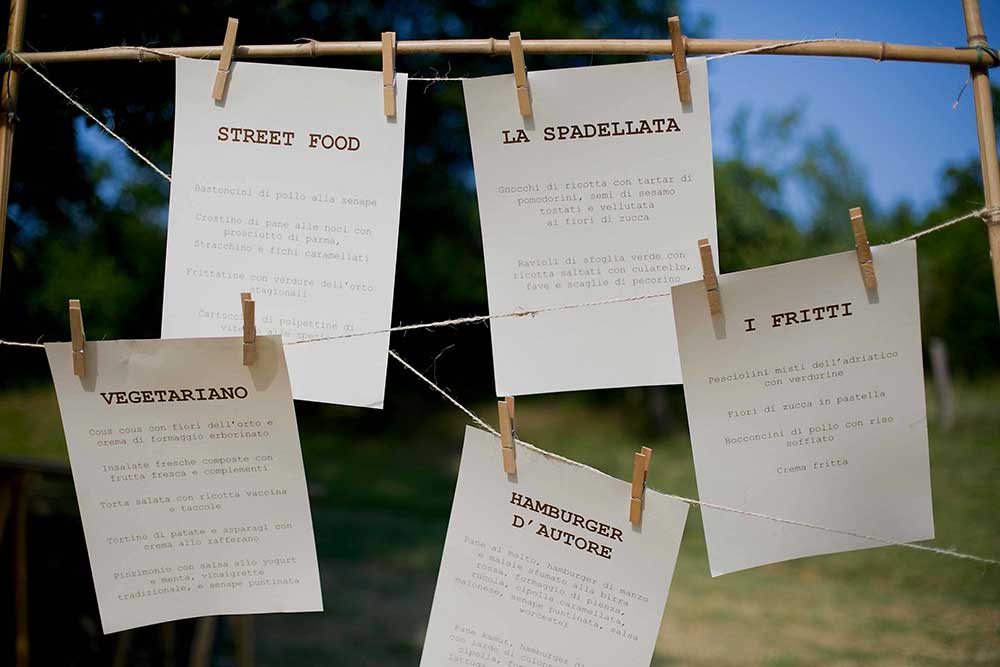 STREET FOOD
Bastoncini di pollo alla senape
Crostino di pane alle noci con
prosciutto di parma,
Stracchino e fichi caramellati
Frittatine con verdure dell'orto
stagionali
Cartoccio di polpettine di
alle
LA SPADELLATA
Gnocchi di ricotta con tartar di
pomodorini, semi di sesamo
tostati e vellutata
ai fiori di zucca
Ravioli di sfoglia verde con
ricotta saltati con culatello,
fave e scaglie di pecorino
I FRITTI
Pesciolini misti dell'adriatico
con verdurine
Fiori di zucca in pastella
Bocconcini di pollo con riso
soffiato
Crema fritta
VEGETARIANO
Cous cous con fiori dell'orto e
crema di formaggio erborinato
Insalate fresche composte con
frutta fresca e complementi
Torta salata con ricotta vaccina
e taccole
Tortino di patate e asparagi con
crema allo zafferano
Pinzimonio con salsa allo yogurt
e menta, vinaigrette
tradizionale, e senape puntinata
HAMBURGER
D'AUTORE
Pane al malto, hamburger di manzo
e maiale sfumato alla birra
rossa, formaggio di pienza,
rucola, cipolla caramellata,
maionese, senape puntinata, salsa
worcester
Pane kamut, hamburger di
con lardo di
cipolla,
lattuga